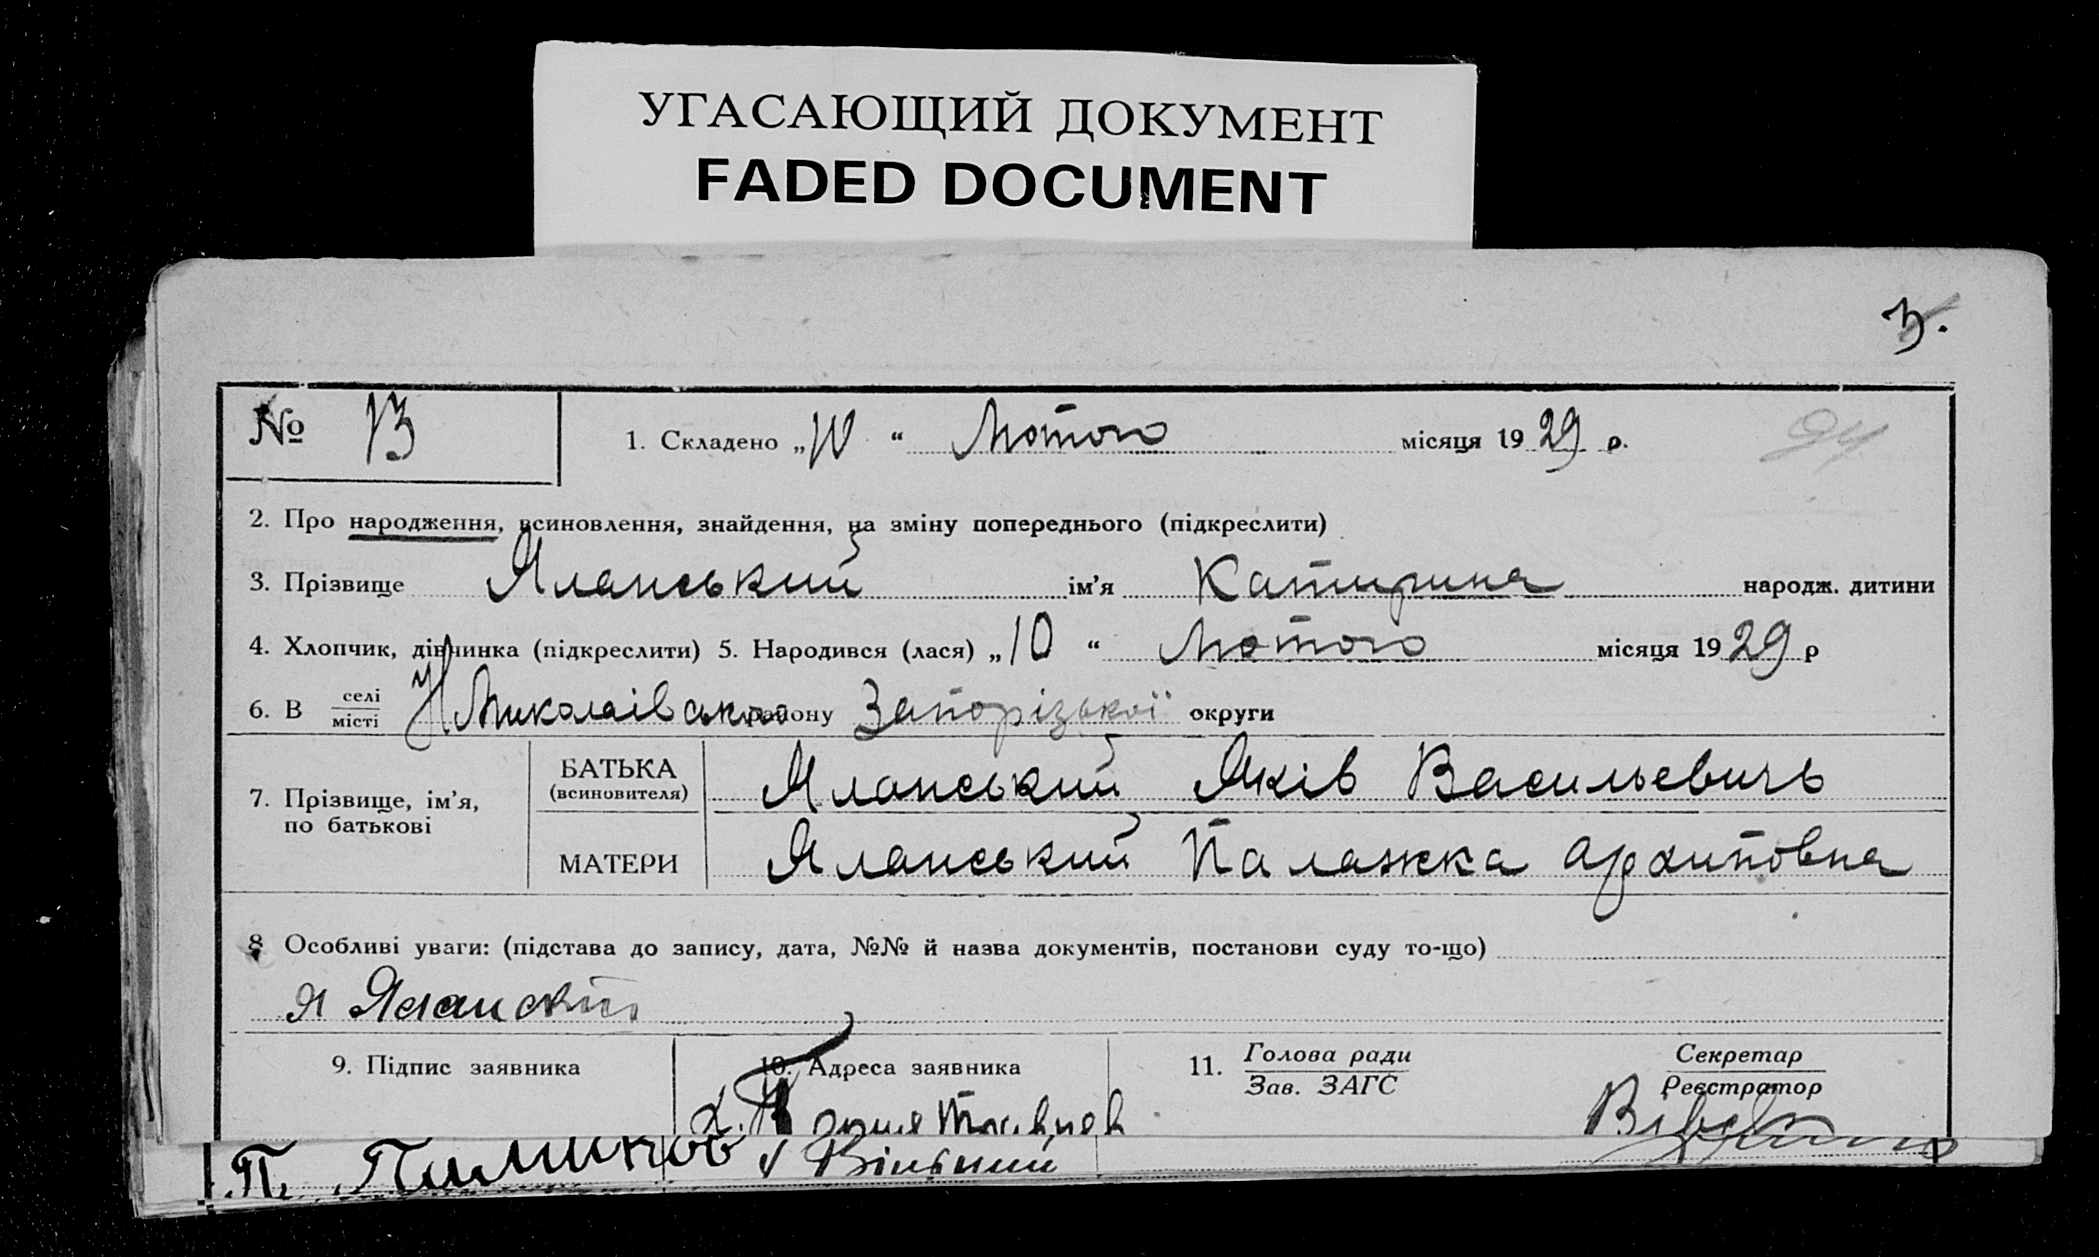 УГАСАЮЩИЙ ДОКУМЕНТ
FADED DOCUMENT
3.
№ 13
1. Складено „10“ Лютого місяця 1929 р.
94
2. Про народження, всиновлення, знайдення, на зміну попереднього (підкреслити)
3. Прізвище Яланський ім’я Катирина народж. дитини
4. Хлопчик, дівчинка (підкреслити) 5. Народився (лася) „10“ Лютого місяця 1929 р
6. В селі/місті Н Миколаівського району Запорізької округи
7. Прізвище, ім’я, по батькові
БАТЬКА (всиновителя) Яланський Яків Васильевичь
МАТЕРИ Яланський Палажка Архиповна
8 Особливі уваги: (підстава до запису, дата, №№ й назва документів, постанови суду то-що)
Я Яланский
9. Підпис заявника
10. Адреса заявника
11. Голова ради / Зав. ЗАГС
Секретар / Реєстратор
х.
П.